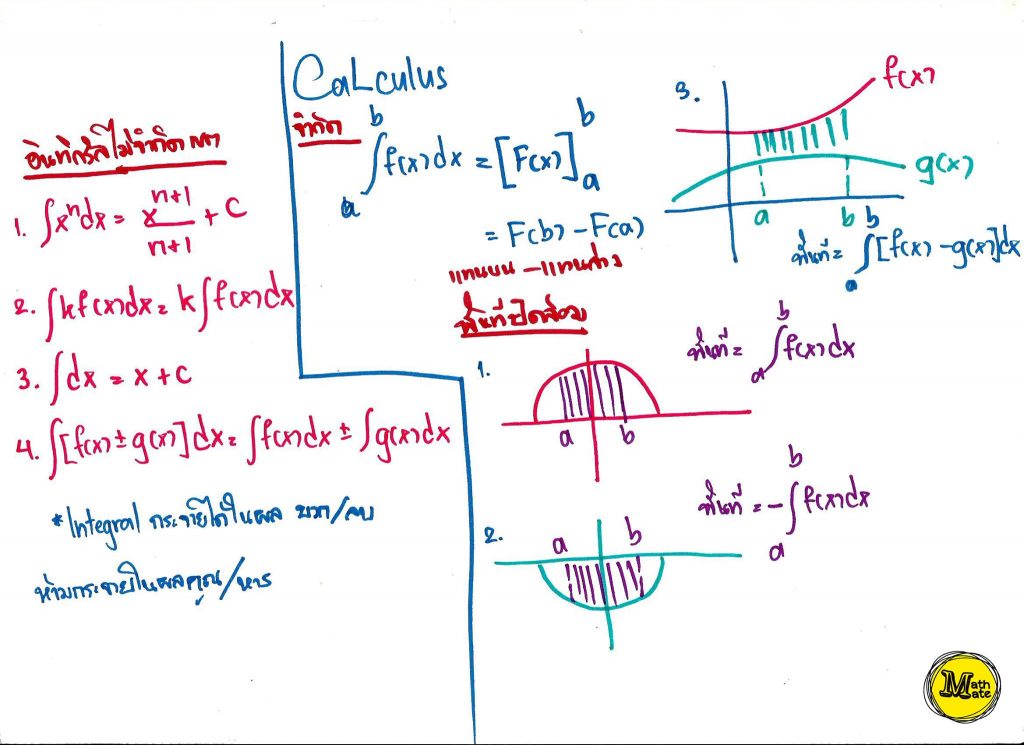 CaLculus
อินทิกรัลไม่จำกัดเขต
1. ∫xⁿdx = xⁿ⁺¹/n+1 + C
2. ∫kf(x)dx = k∫f(x)dx
3. ∫dx = x + c
4. ∫[f(x) ± g(x)]dx = ∫f(x)dx ± ∫g(x)dx
*Integral กระจายได้ในผล บวก/ลบ
ห้ามกระจายในผลคูณ/หาร
จำกัด
∫ₐᵇ f(x)dx = [F(x)]ₐᵇ
= F(b) - F(a)
แทนบน - แทนล่าง
พื้นที่ปิดล้อม
1.
a b
พื้นที่ = ∫ₐᵇ f(x)dx
2.
a b
พื้นที่ = -∫ₐᵇ f(x)dx
3.
f(x)
g(x)
a b
พื้นที่ = ∫ₐᵇ [f(x) - g(x)]dx
Math
Mate